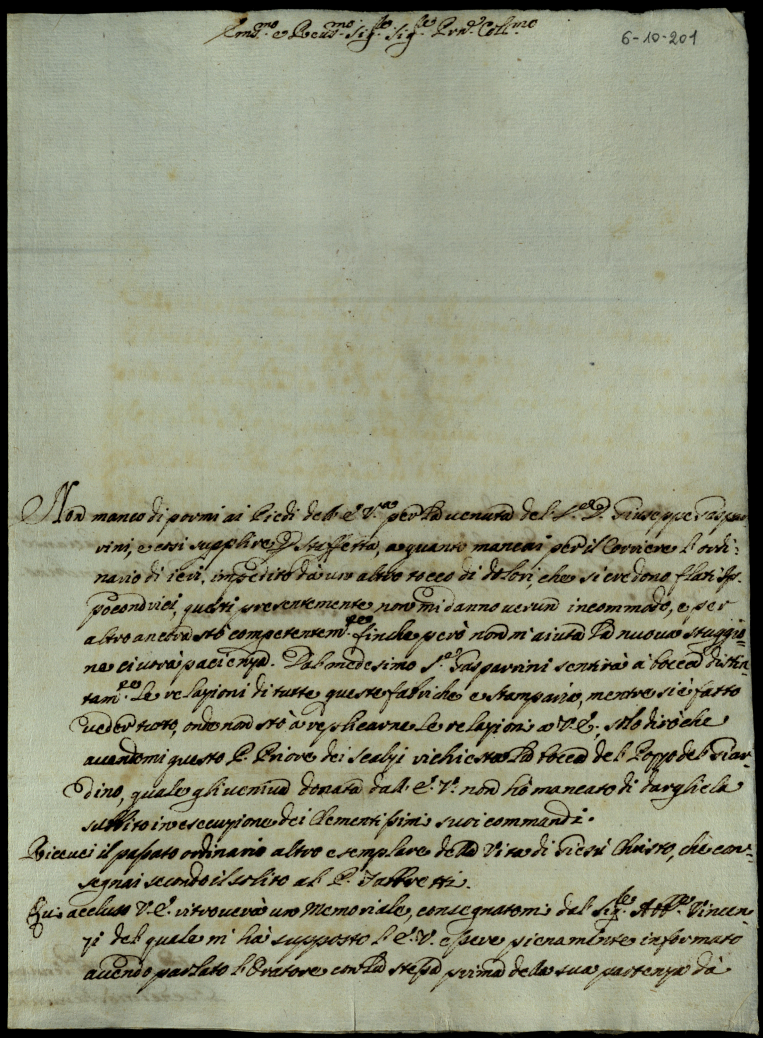 Em.mo e Reu.mo Sig.re Sig.re Prn.e Coll.mo
6-10-201
Non manco di pormi ai Piedi dell'E. V.ra per la uenuta del S.r D. Giuseppe Gaspar-
rini, e cosi supplire p Staffetta, a quanto mancai per il Corriere l'ordi-
nario di ieri, impedito da un altro tocco di dolori, che si credono flati Ip-
pocondrici, questi presentemente non mi danno uerun incommodo, e per
altro ancora stò competentem.te finche però non m'aiuta la nuoua staggio-
ne ci uorrà pacienza. Dal medesimo S.r Gasparrini sentirà à bocca distin-
tam.te le relazioni di tutte queste fabriche e Stamparia, mentre si è fatto
ueder tutto, onde non stò à replicarne le relazioni a V. E. solo dirò che
auendomi questo P. Priore dei Scalzi richiesta la bocca del Pozzo del Giar-
dino, quale gli ueniua donata dall'E. V. non hò mancato di dargliela
subbito in esecuzione dei Clementissimi suoi commandi.
Riceuei il passato ordinario altro esemplare della Vita di Giesù Christo, che con-
segnai secondo il solito al P. Fabbretti.
Qui accluso V. E. ritrouerà un Memoriale, consegnatomi dal Sig.re Abb.e Vincen-
zi del quale m'hà supposto l'E. V. essere pienamente informato
auendo parlato l'Oratore con la stessa prima della sua partenza da